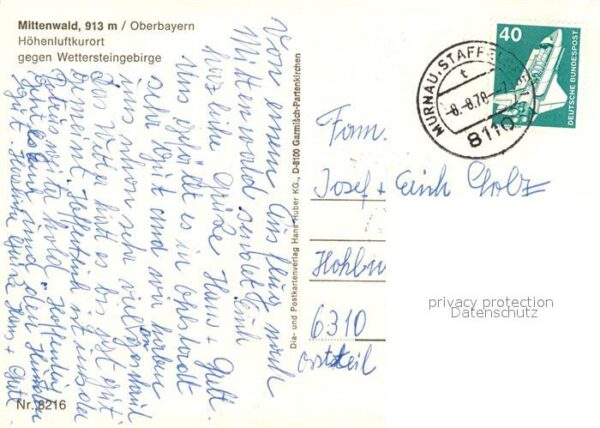 Mittenwald, 913 m / Oberbayern
Höhenluftkurort
gegen Wettersteingebirge
Von einem Ausflug nach
Mittenwald sendet Euch
herzliche Grüße Hans + Gitt.
Uns gefällt es in
sehr gut und wir haben
uns schon sehr viel angeschaut
Das Wetter hat es bis jetzt gut
gemeint. Hoffentlich ist uns der
weiter hold. Hoffentlich
geht es Euch und den Kindern
gut. Herzliche Grüße Hans + Gitt.
Nr. 8216
Dia- und Postkartenverlag Hans Huber KG., D-8100 Garmisch-Partenkirchen
40
DEUTSCHE BUNDESPOST
MURNAU, STAFF
t
-8.-8.78
8110
Fam.
Josef + Erich Golz
6310
Ortsteil
privacy protection
Datenschutz